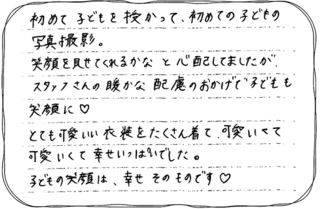 初めて子どもを授かって、初めての子どもの
写真撮影。
笑顔を見せてくれるかなと心配してましたが
スタッフさんの暖かな配慮のおかげで子どもも
笑顔に♡
とても可愛いい衣装をたくさん着て可愛いくて
可愛いくて幸せいっぱいでした。
子どもの笑顔は、幸せそのものです♡